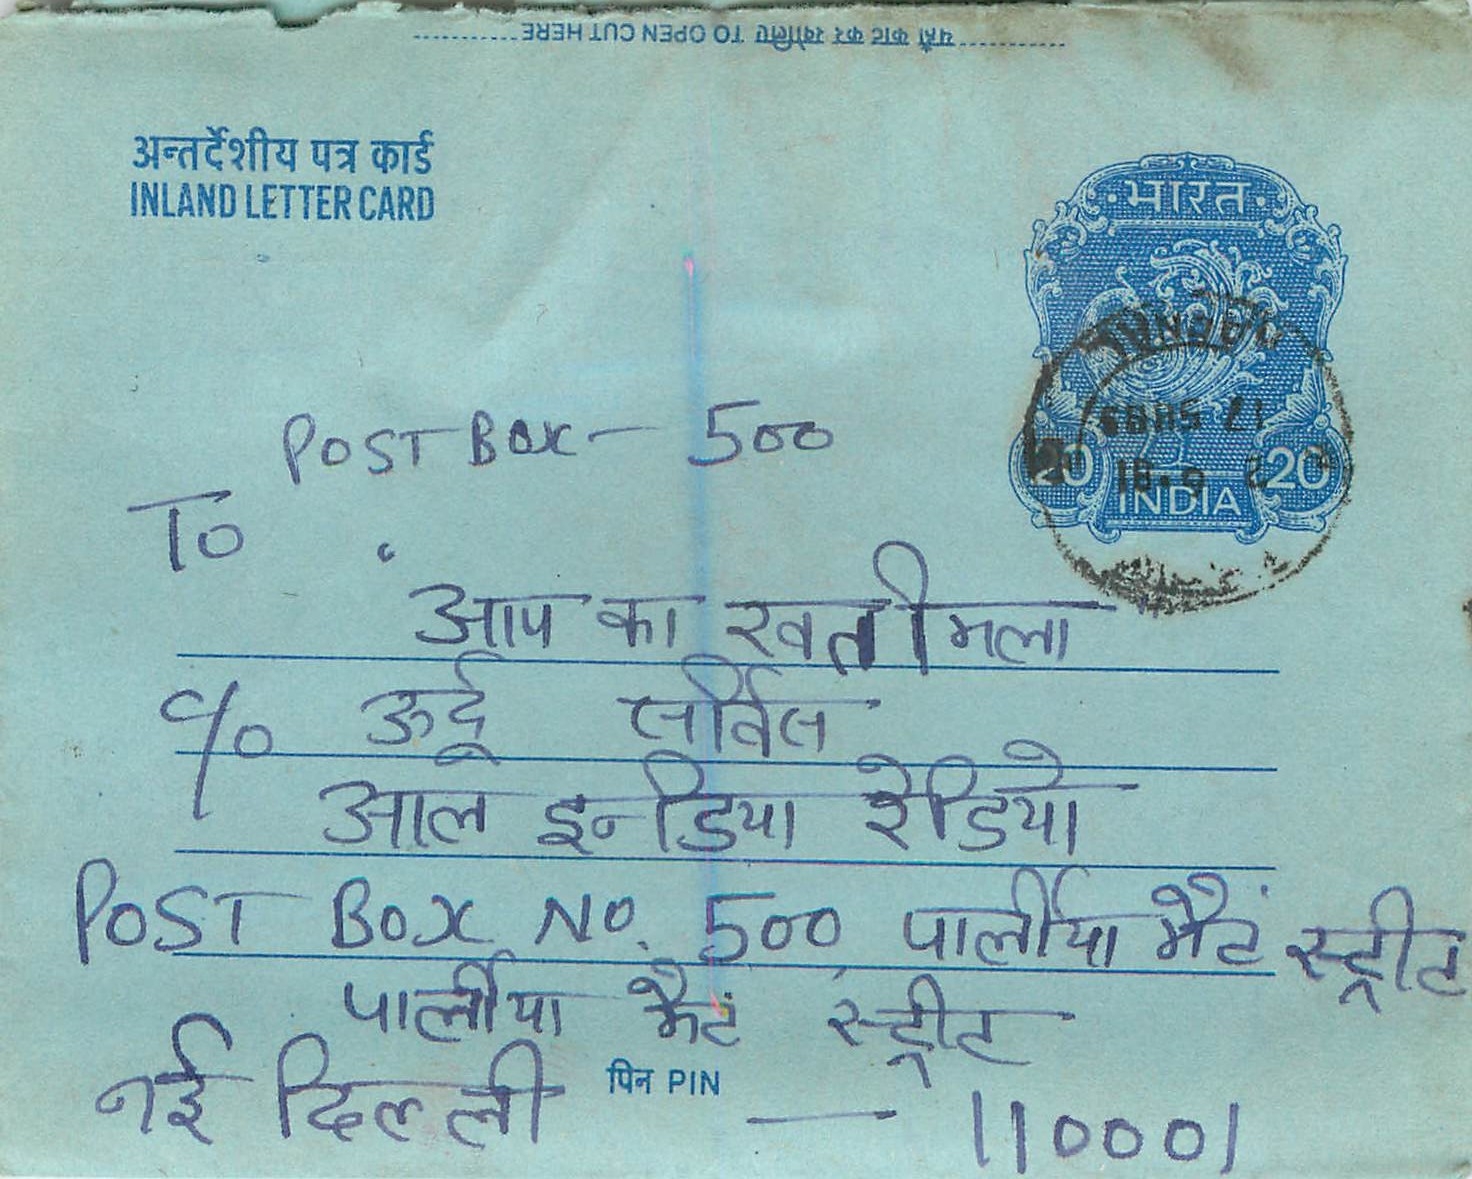 यहाँ काट कर खोलिए TO OPEN CUT HERE
अन्तर्देशीय पत्र कार्ड
INLAND LETTER CARD
भारत
20 20
INDIA
POST BOX - 500
To
आप का खत मिला
c/o ऊर्दू सर्विस
आल इन्डिया रेडियो
POST BOX NO. 500 पार्लीया मैटं स्ट्रीट
पार्लीया मैटं स्ट्रीट
पिन PIN
नई दिल्ली — 110001